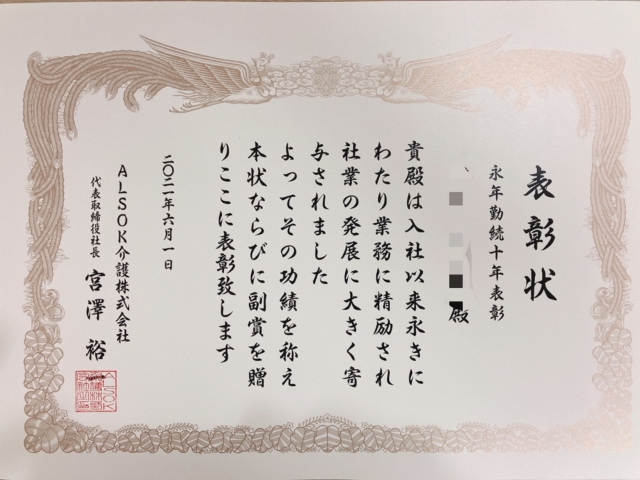 表彰状
永年勤続十年表彰
殿
貴殿は入社以来永きに
わたり業務に精励され
社業の発展に大きく寄
与されました
よってその功績を称え
本状ならびに副賞を贈
りここに表彰致します
二〇二一年六月一日
ALSOK介護株式会社
代表取締役社長 宮澤裕